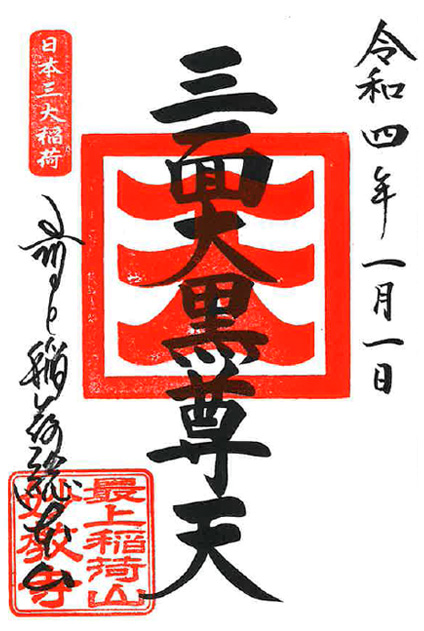 令和四年一月一日
三面大黒尊天
日本三大稲荷
最上稲荷総本山
最上稲荷山
妙教寺